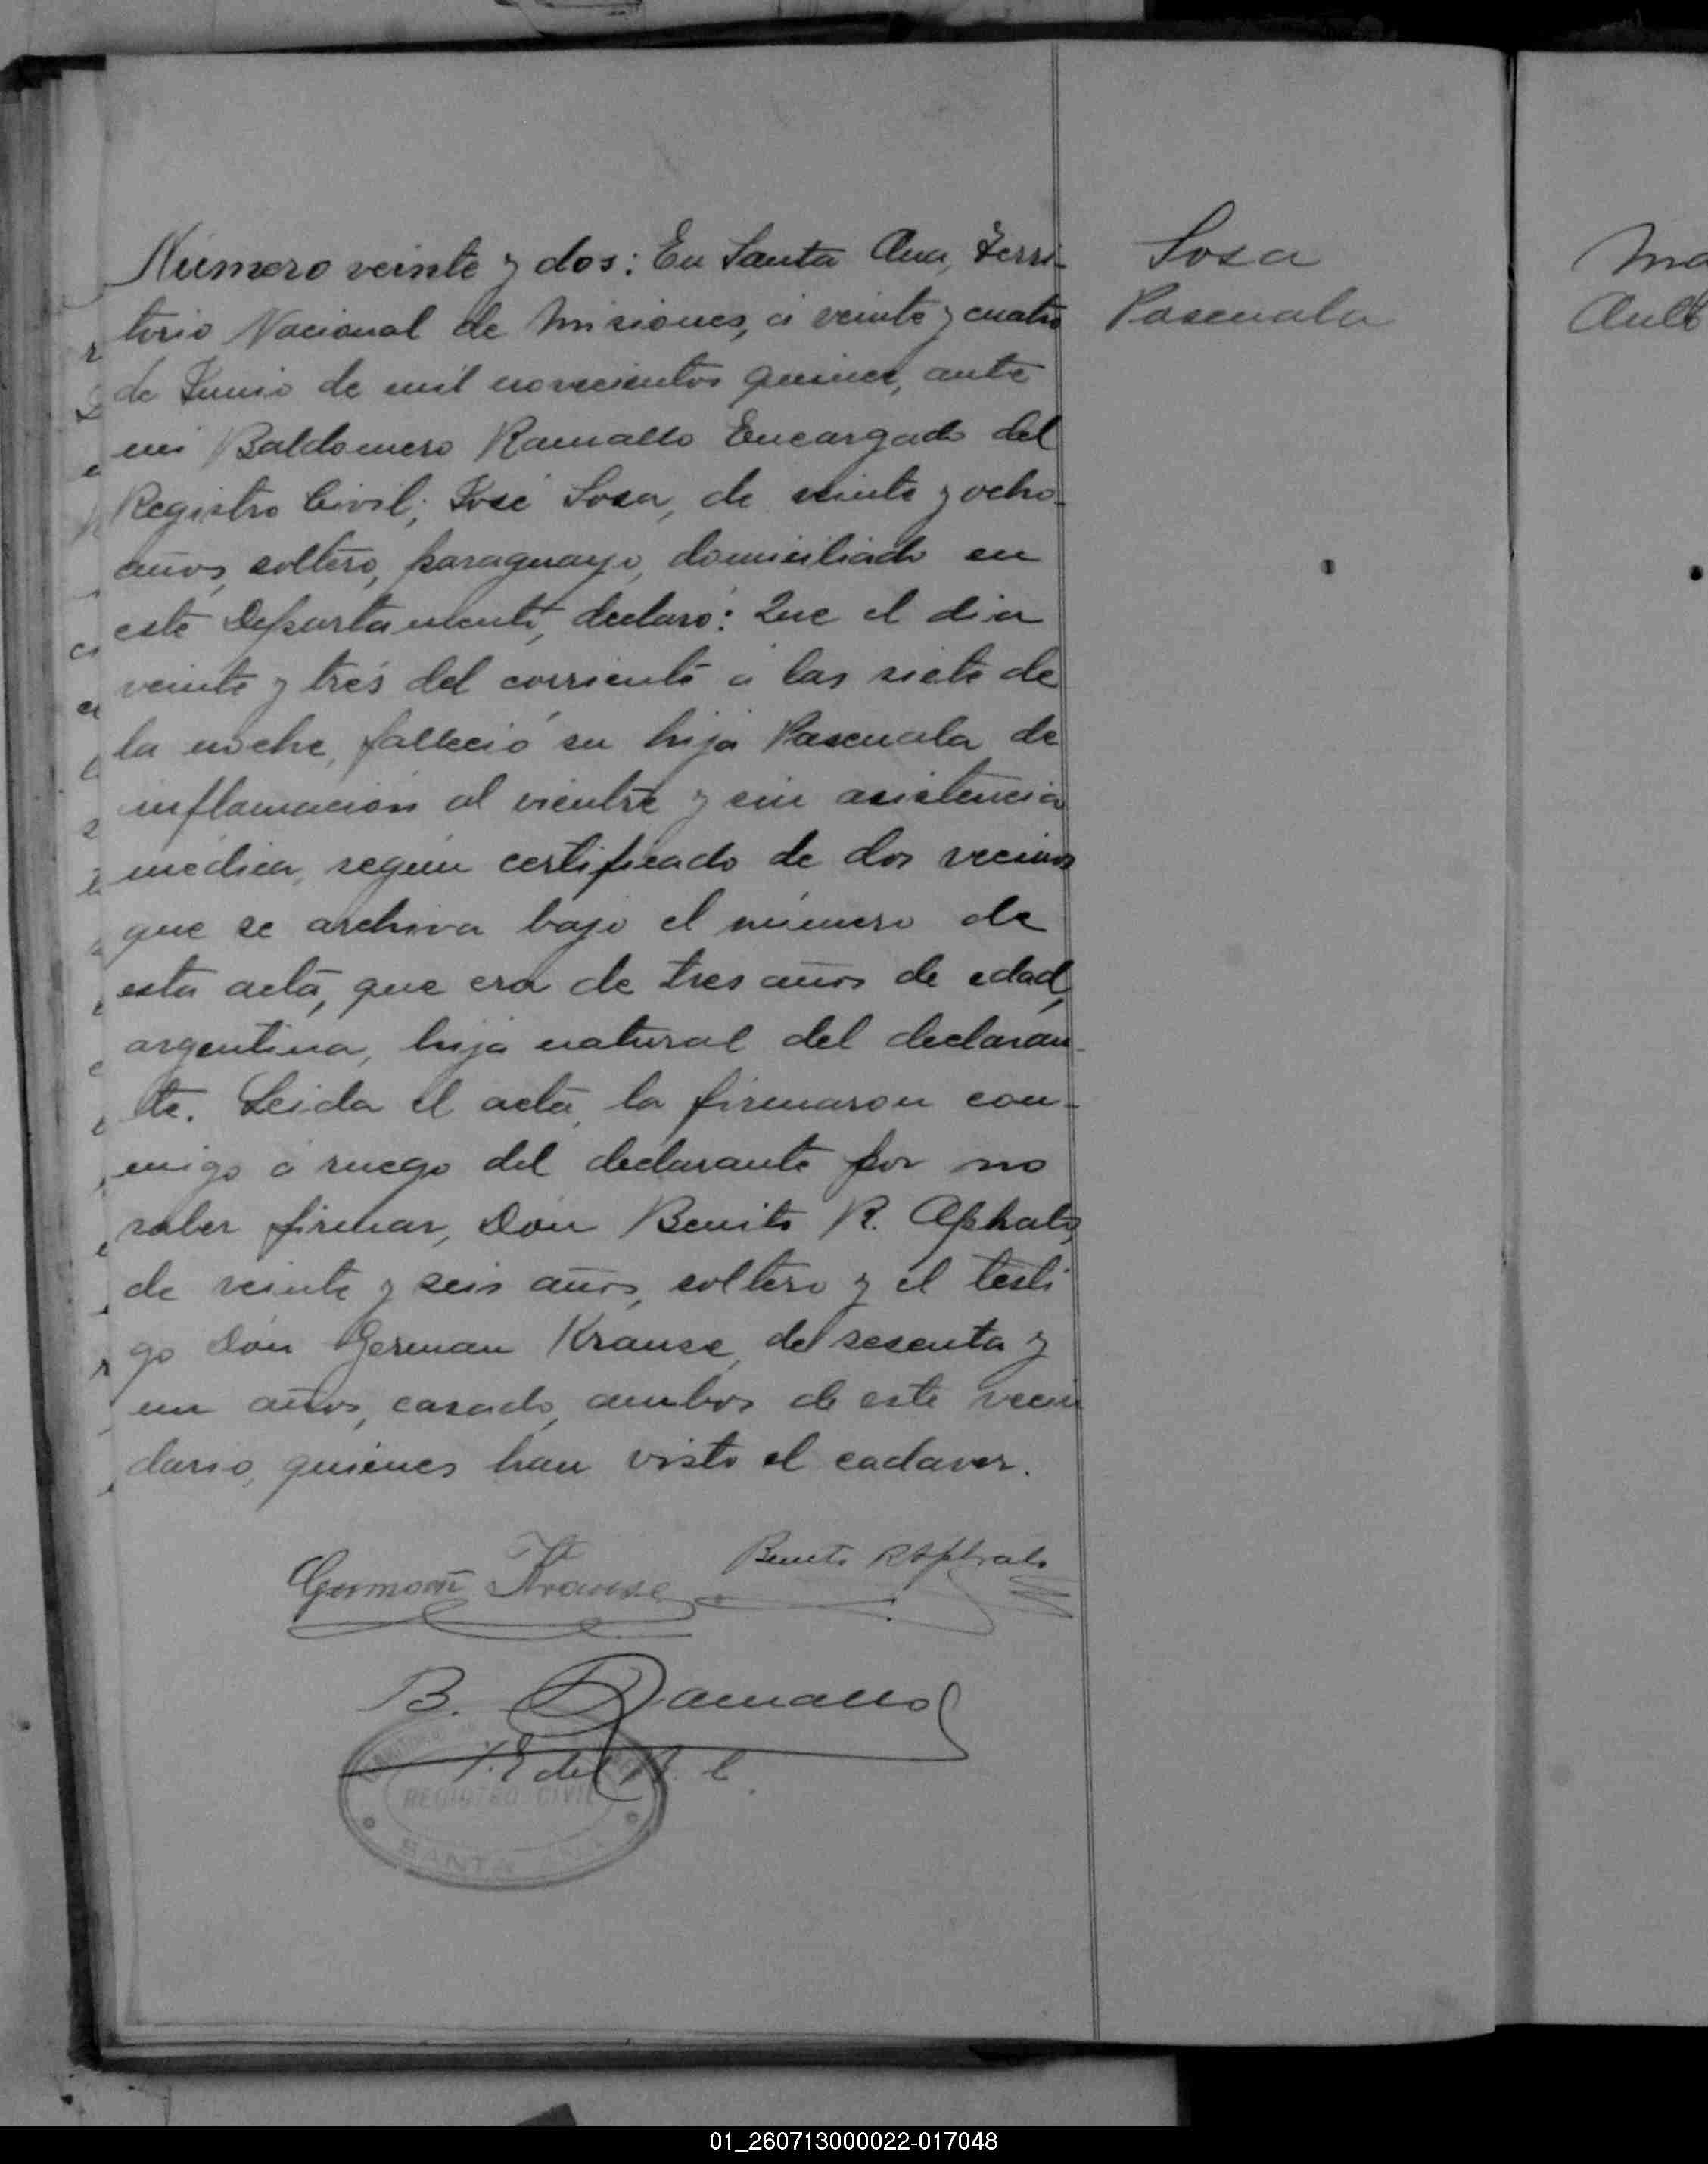 Número veinte y dos: En Santa Ana, Terri-
torio Nacional de Misiones, á veinte y cuatro
de Junio de mil novecientos quince, ante
mi Baldomero Ramallo Encargado del
Registro Civil; José Sosa, de veinte y ocho
años, soltero, paraguayo, domiciliado en
este Departamento, declaró: Que el dia
veinte y trés del corriente á las siete de
la noche, falleció su hija Pascuala de
inflamación al vientre y sin asistencia
médica, según certificado de dos vecinos
que se archiva bajo el número de
esta acta, que era de tres años de edad,
argentina, hija natural del declaran-
te. Leida el acta, la firmaron con-
migo á ruego del declarante por no
saber firmar, Don Benito R. Aphalo,
de veinte y seis años, soltero y el testi
go Don German Krause, de sesenta y
un años, casado, ambos de este vecin
dario, quienes han visto el cadaver.
Sosa
Pascuala
German Krause
Benito R Aphalo
B. Ramallo
E del R. C
REGISTRO CIVIL
SANTA ANA
01_260713000022-017048